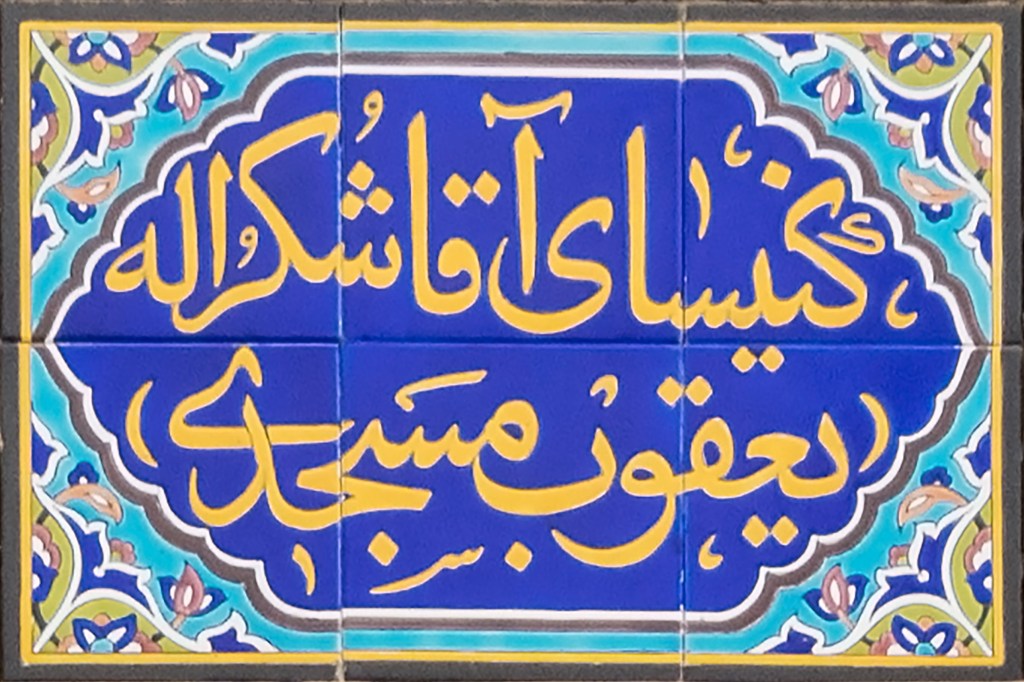 کنیسای آقا شکراله
(یعقوب مسجدی)